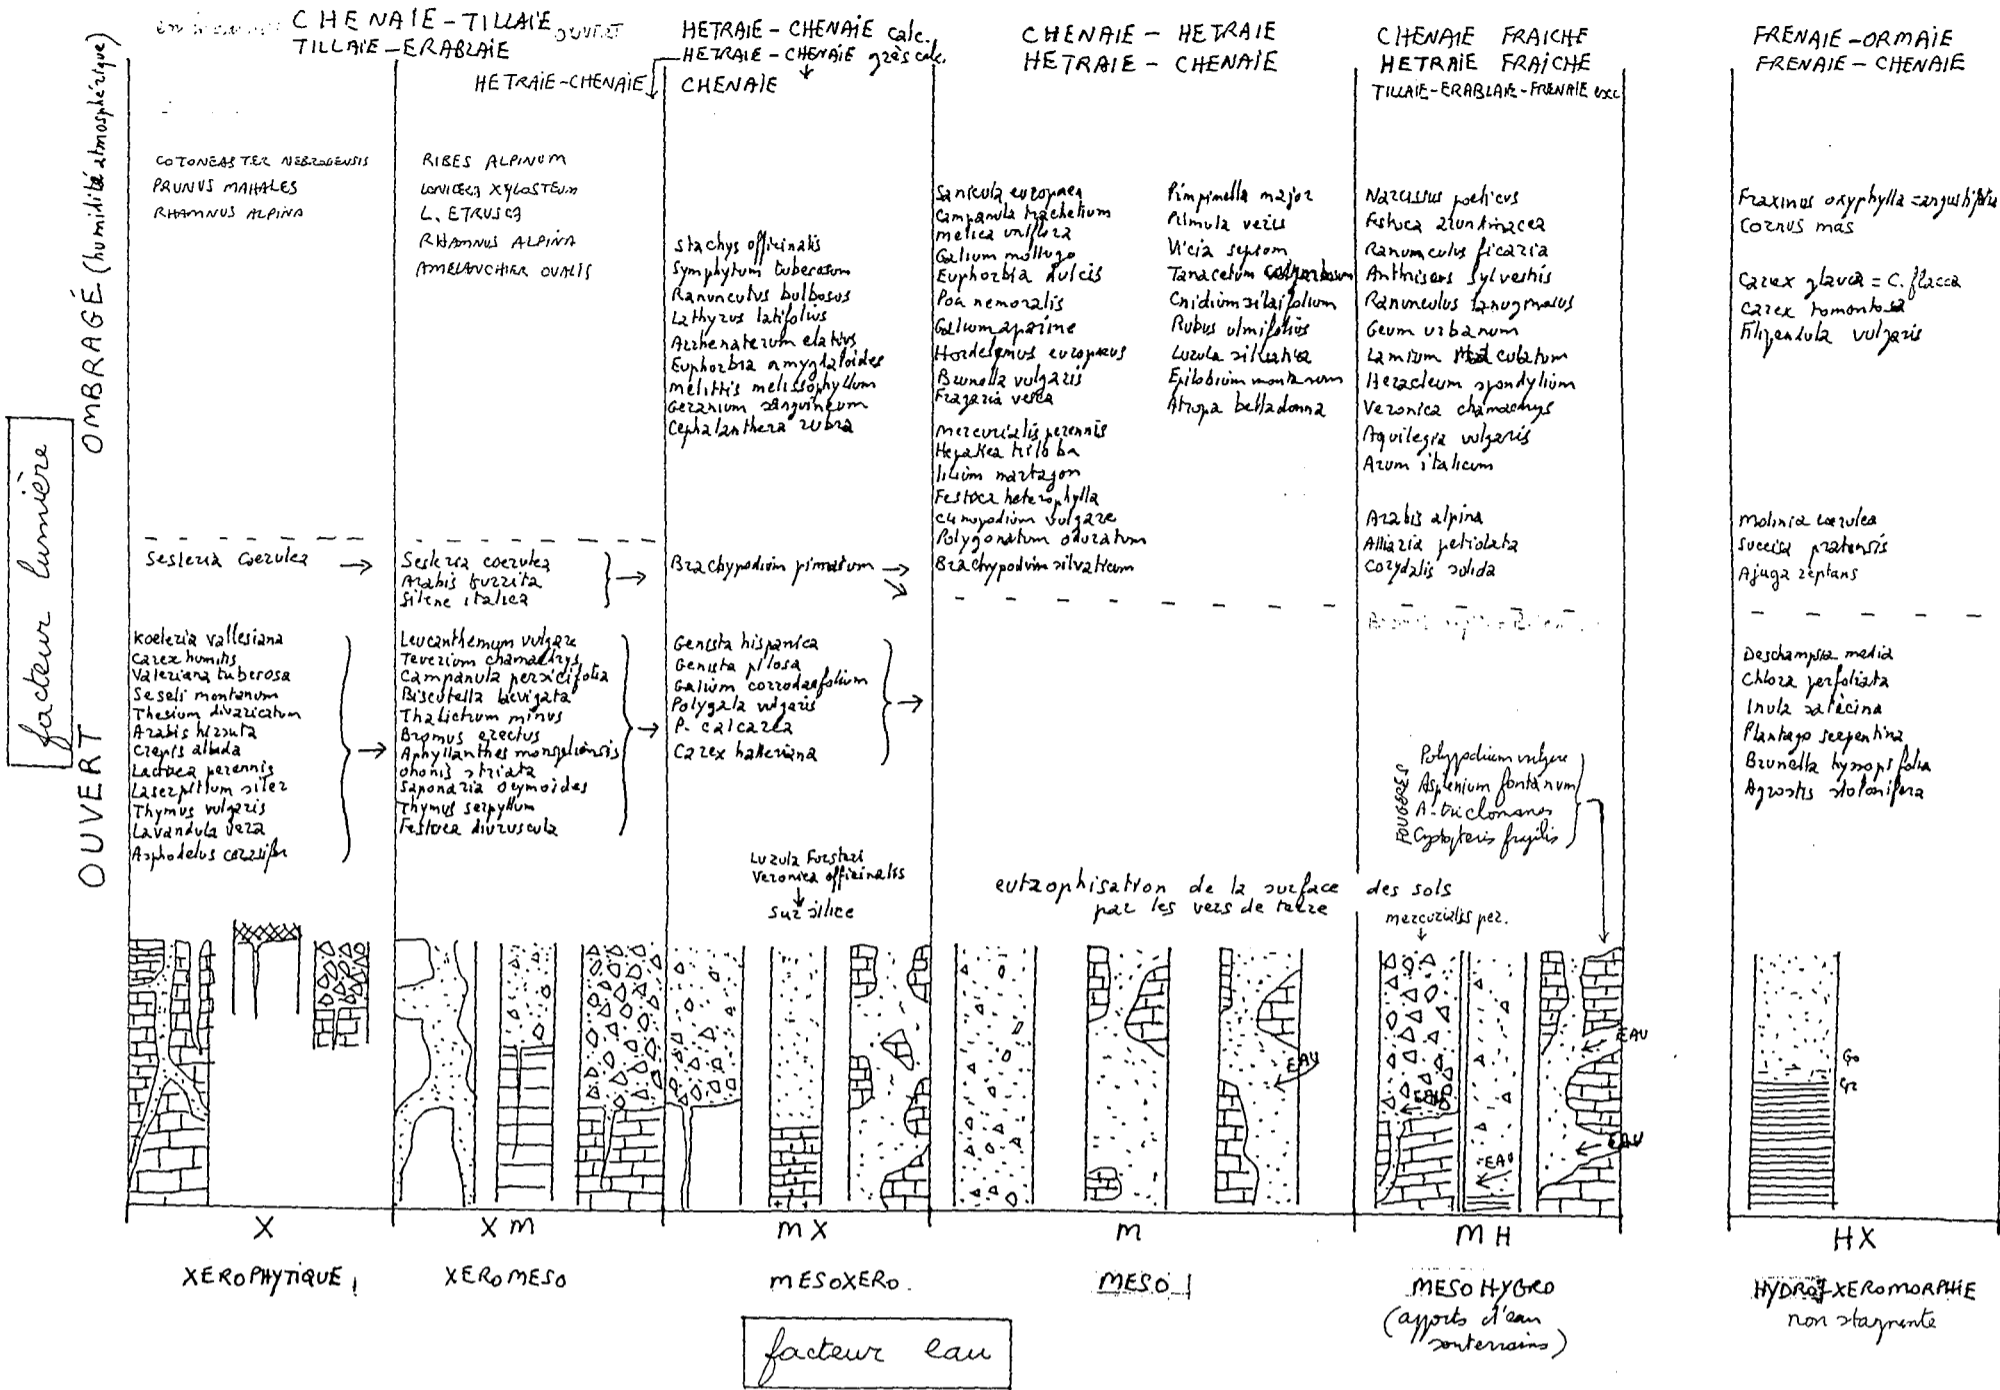 CHENAIE - TILLAIE OUVERT
TILLAIE - ERABLAIE
HETRAIE - CHENAIE
HETRAIE - CHENAIE calc.
HETRAIE - CHENAIE grès calc.
CHENAIE
CHENAIE - HETRAIE
HETRAIE - CHENAIE
CHENAIE FRAICHE
HETRAIE FRAICHE
TILLAIE-ERABLAIE-FRENAIE exc
FRENAIE-ORMAIE
FRENAIE - CHENAIE
facteur lumière
OMBRAGÉ (humidité atmosphérique)
OUVERT
COTONEASTER NEBROGENSIS
PRUNUS MAHALES
RHAMNUS ALPINA
Sesleria Coerulea →
Koeleria vallesiana
Carex humilis
Valeriana tuberosa
Seseli montanum
Thesium divaricatum
Arabis hirsuta
Crepis albida
Lactuca perennis
Laserpitium siler
Thymus vulgaris
Lavandula vera
Asphodelus cerasifer
RIBES ALPINUM
LONICERA XYLOSTEUM
L. ETRUSCA
RHAMNUS ALPINA
AMELANCHIER OVALIS
Sesleria coerulea
Arabis turrita
Silene italica
Leucanthemum vulgare
Teucrium chamaedrys
Campanula persicifolia
Biscutella laevigata
Thalictrum minus
Bromus erectus
Aphyllanthes monspeliensis
Ononis striata
Saponaria ocymoides
Thymus serpyllum
Festuca duriuscula
Stachys officinalis
Symphytum tuberosum
Ranunculus bulbosus
Lathyrus latifolius
Arrhenaterum elatius
Euphorbia amygdaloides
Melittis melissophyllum
Geranium sanguineum
Cephalanthera rubra
Brachypodium pinnatum →
Genista hispanica
Genista pilosa
Galium corrudaefolium
Polygala vulgaris
P. calcarea
Carex halleriana
Luzula Forsteri
Veronica officinalis
sur silice
Sanicula europaea
Campanula trachelium
Melica uniflora
Galium mollugo
Euphorbia dulcis
Poa nemoralis
Galium aparine
Hordelymus europaeus
Brunella vulgaris
Fragaria vesca
Mercurialis perennis
Hepatica triloba
lilium martagon
Festuca heterophylla
clinopodium vulgare
Polygonatum odoratum
Brachypodium silvaticum
Pimpinella major
Primula veris
Vicia sepium
Tanacetum corymbosum
Cnidium silaifolium
Rubus ulmifolius
Luzula silvatica
Epilobium montanum
Atropa belladonna
eutrophisation de la surface des sols
par les vers de terre
Narcissus poeticus
Festuca arundinacea
Ranunculus ficaria
Anthriscus sylvestris
Ranunculus lanuginosus
Geum urbanum
Lamium maculatum
Heracleum spondylium
Veronica chamaedrys
Aquilegia vulgaris
Arum italicum
Arabis alpina
Alliaria petiolata
Corydalis solida
FOUGERES
Polypodium vulgare
Asplenium fontanum
A. trichomanes
Cystopteris fragilis
mercurialis per.
Fraxinus oxyphylla = angustifolia
Cornus mas
Carex glauca = C. flacca
Carex tomentosa
Filipendula vulgaris
Molinia coerulea
Succisa pratensis
Ajuga reptans
Deschampsia media
Chlora perfoliata
Inula salicina
Plantago serpentina
Brunella hyssopifolia
Agrostis stolonifera
EAU
EAU
EAU
EAU
EAU
Go
Gr
X
XM
MX
M
MH
HX
XEROPHYTIQUE
XEROMESO
MESOXERO.
MESO
MESOHYGRO
(apports d'eau
souterrains)
HYDRO-XEROMORPHIE
non stagnante
facteur eau